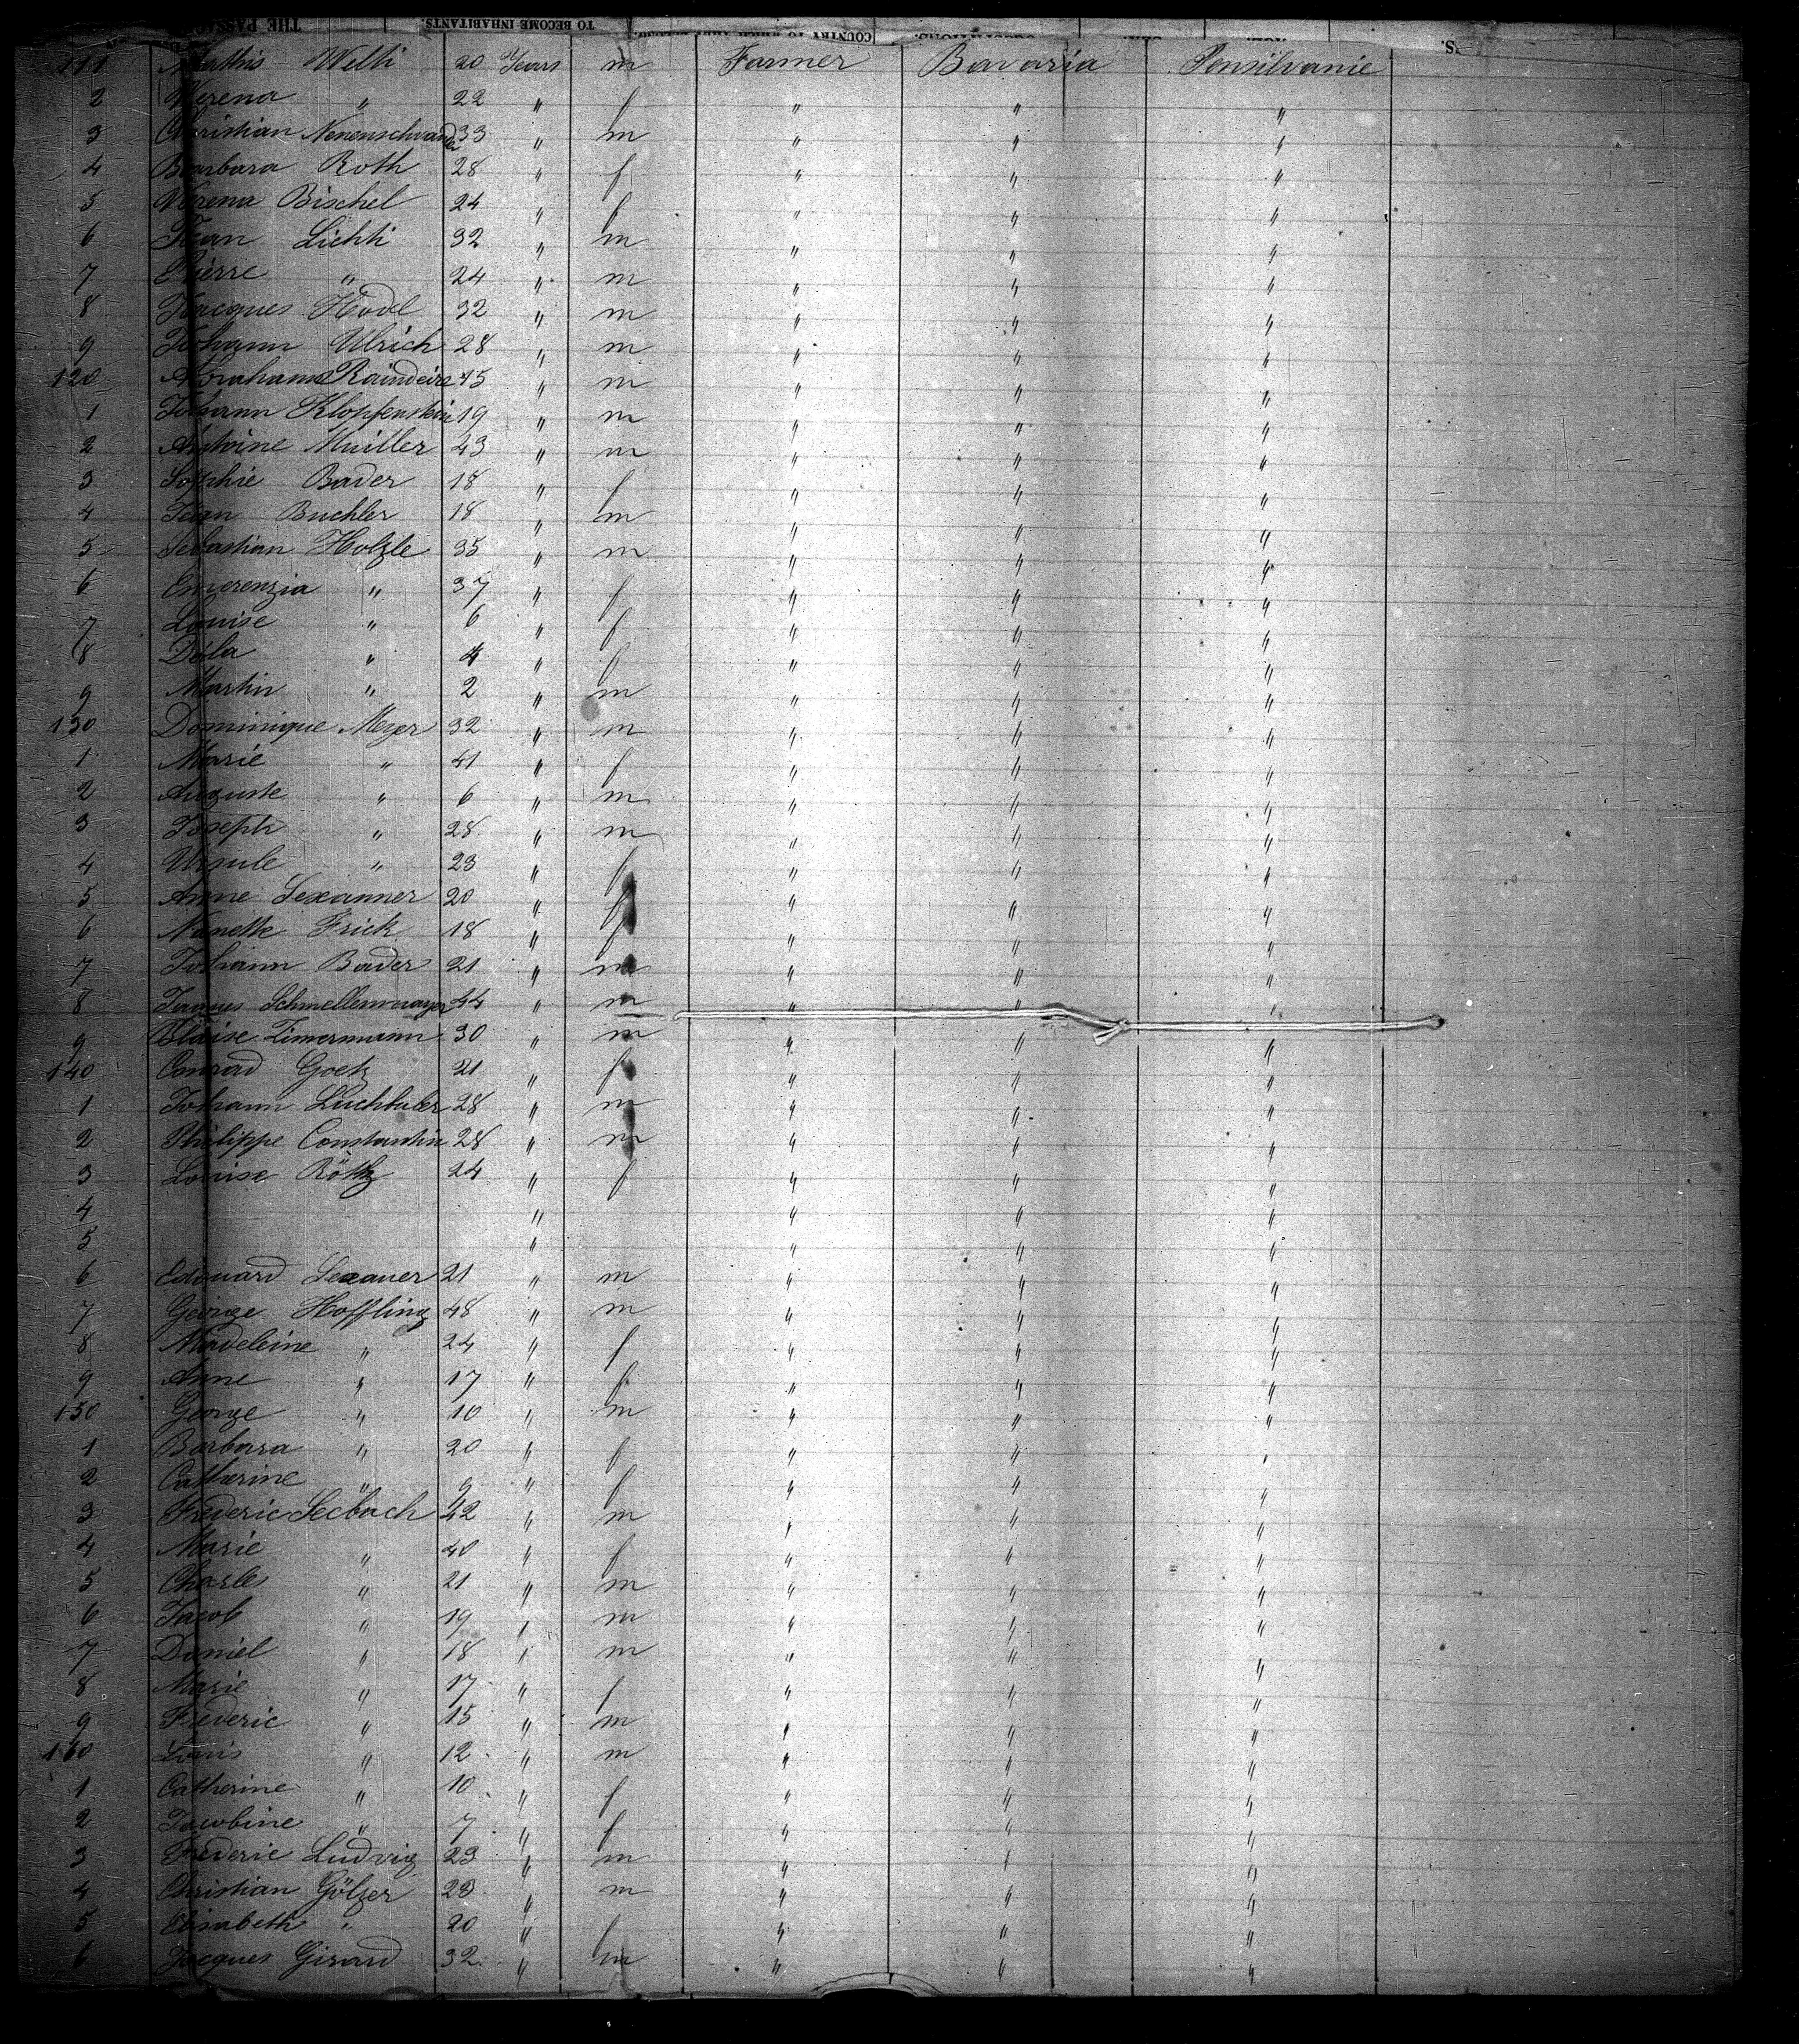 THE PASSA
TO BECOME INHABITANTS.
COUNTRY TO WHICH THEY
111 Mathis Welti 20 Years m Farmer Bavaria Pensilvanie
2 Verena " 22 " f " " "
3 Christian Nenenschwander 33 " m " " "
4 Barbara Roth 28 " f " " "
5 Verena Bischel 24 " f " " "
6 Jean Lichti 32 " m " " "
7 Pierre " 24 " m " " "
8 Jacques Hodel 32 " m " " "
9 Johann Ulrich 28 " m " " "
120 Abraham 45 " m " " "
1 Johann Klopfenstein 19 " m " " "
2 Antoine Muiller 43 " m " " "
3 Sophie Bader 18 " f " " "
4 Jean Buchler 18 " m " " "
5 Sebastian Holzle 35 " m " " "
6 Emerenzia " 37 " f " " "
7 Louise " 6 " f " " "
8 " 4 " f " " "
9 Martin " 2 " m " " "
130 Dominique Meyer 32 " m " " "
1 Marie " 41 " f " " "
2 Auguste " 6 " m " " "
3 Joseph " 28 " m " " "
4 Ursule " 23 " f " " "
5 Anne Sexanner 20 " f " " "
6 Nanette Frick 18 " f " " "
7 Johann Bader 21 " m " " "
8 Schmellenmayer 44 " m " " "
9 Zimermann 30 " m " " "
140 Conrad Goetz 21 " f " " "
1 Johann 28 " m " " "
2 Philippe Constantin 28 " m " " "
3 Louise 24 " f " " "
4 " " " "
5 " " " "
6 Edouard Sexauer 21 " m " " "
7 George Hoffling 48 " m " " "
8 Madeleine " 24 " f " " "
9 Anne " 17 " f " " "
150 George " 10 " m " " "
1 Barbara " 20 " f " " "
2 Catherine " 9 " f " " "
3 Frederic Seebach 42 " m " " "
4 Marie " 40 " f " " "
5 Charles " 21 " m " " "
6 Jacob " 19 " m " " "
7 Daniel " 18 " m " " "
8 Marie " 17 " f " " "
9 Frederic " 15 " m " " "
160 Louis " 12 " m " " "
1 Catherine " 10 " f " " "
2 Jacobine " 7 " f " " "
3 Frederic Ludvig 23 " m " " "
4 Christian Gölzer 23 " m " " "
5 Elisabeth " 20 " f " " "
6 Jacques Girard 32 " m " " "